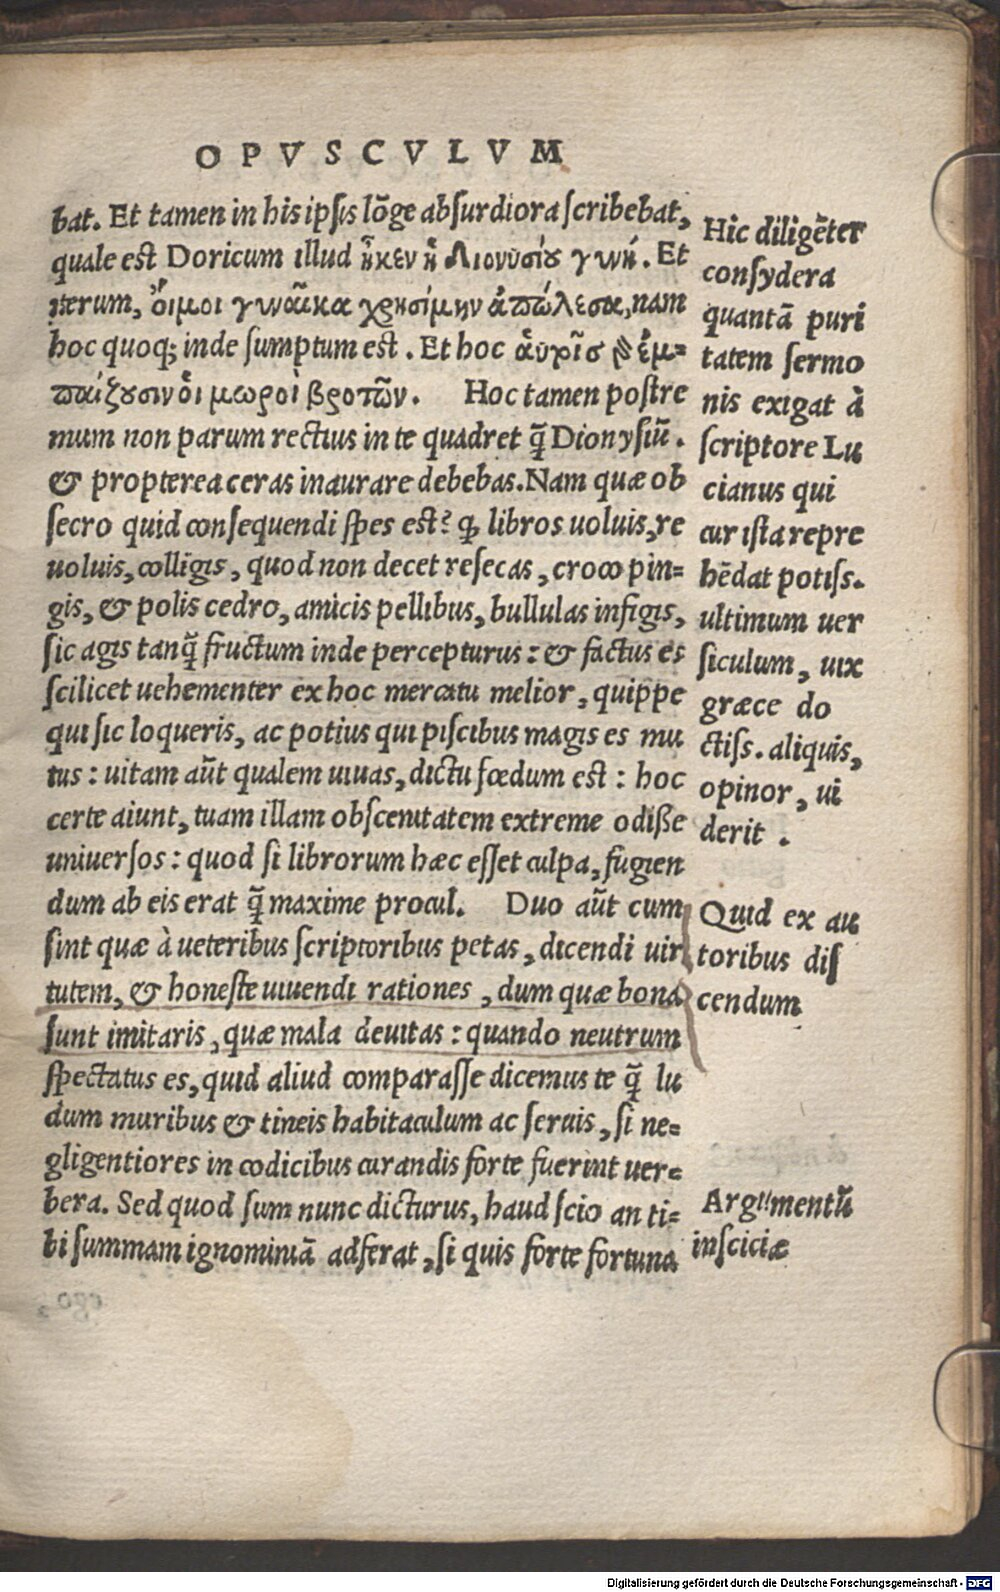 OPVSCVLVM
bat. Et tamen in his ipsis lōge absurdiora scribebat,
quale est Doricum illud ἧκεν ἡ Διονυσίου γυνή. Et
iterum, οἴμοι γυναῖκα χρησίμην ἀπώλεσα, nam
hoc quoq; inde sumptum est. Et hoc αὑρῖς γδ ἐμ=
παίζουσιν οἱ μωροὶ βροτῶν. Hoc tamen postre
mum non parum rectius in te quadret q̄ Dionysiū.
& propterea ceras inaurare debebas. Nam quæ ob
secro quid consequendi spes est? ꝙ libros uoluis, re
uoluis, colligis, quod non decet resecas, croco pin=
gis, & polis cedro, amicis pellibus, bullulas infigis,
sic agis tanq̄ fructum inde percepturus: & factus es
scilicet uehementer ex hoc mercatu melior, quippe
qui sic loqueris, ac potius qui piscibus magis es mu
tus: uitam aūt qualem uiuas, dictu fœdum est: hoc
certe aiunt, tuam illam obscenitatem extreme odiße
uniuersos: quod si librorum hæc esset culpa, fugien
dum ab eis erat q̄ maxime procul. Duo aūt cum
sint quæ à ueteribus scriptoribus petas, dicendi uir
tutem, & honeste uiuendi rationes, dum quæ bona
sunt imitaris, quæ mala deuitas: quando neutrum
spectatus es, quid aliud comparasse dicemus te q̄ lu
dum muribus & tineis habitaculum ac seruis, si ne=
gligentiores in codicibus curandis forte fuerint uer=
bera. Sed quod sum nunc dicturus, haud scio an ti=
bi summam ignominiā adferat, si quis forte fortuna
Hic diligēter
consydera
quantā puri
tatem sermo
nis exigat à
scriptore Lu
cianus qui
cur ista repre
hēdat potiss.
ultimum uer
siculum, uix
græce do
ctiss. aliquis,
opinor, ui
derit.
Quid ex au
toribus dis
cendum
Argumentū
insciciæ
Digitalisierung gefördert durch die Deutsche Forschungsgemeinschaft - DFG